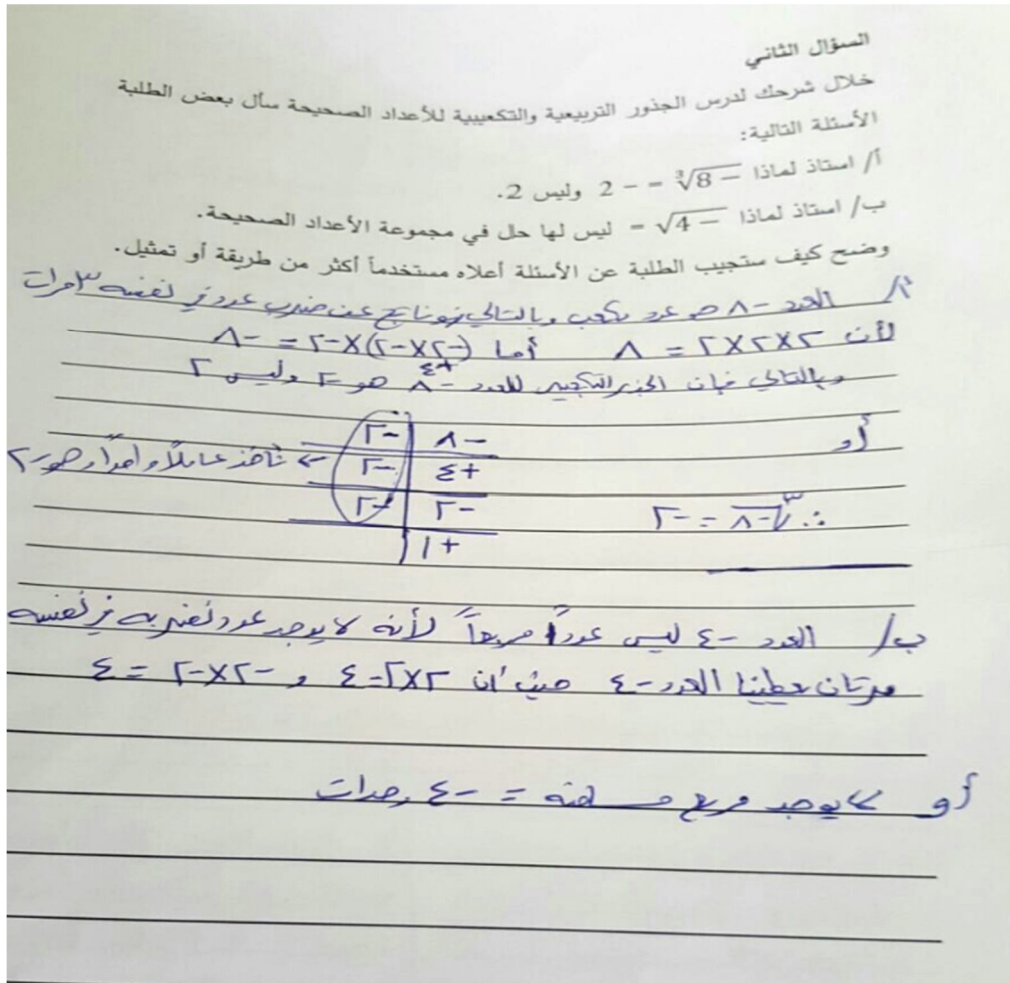 السؤال الثاني
خلال شرحك لدرس الجذور التربيعية والتكعيبية للأعداد الصحيحة سأل بعض الطلبة
الأسئلة التالية:
أ/ استاذ لماذا ∛8 − = − 2 وليس 2.
ب/ استاذ لماذا √4 − = ليس لها حل في مجموعة الأعداد الصحيحة.
وضح كيف ستجيب الطلبة عن الأسئلة أعلاه مستخدماً أكثر من طريقة أو تمثيل.
أ/ العدد -٨ هو عدد مكعب وبالتالي فهو ناتج عن ضرب عدد في نفسه ٣ مرات
لأن ٢×٢×٢ = ٨ أما (-٢×-٢)×-٢ = -٨
+٤
وبالتالي فإن الجذر التكعيبي للعدد -٨ هو -٢ وليس ٢
أو
-٨ | -٢
+٤ | -٢ ← نأخذ عاملاً واحداً وهو -٢
-٢ | -٢
+١
∴ ∛-٨ = -٢
ب/ العدد -٤ ليس عدداً مربعاً لأنه لا يوجد عدد نضربه في نفسه
مرتان يعطينا العدد -٤ حيث أن ٢×٢=٤ و -٢×-٢ = ٤
أو لا يوجد مربع مساحته = -٤ وحدات